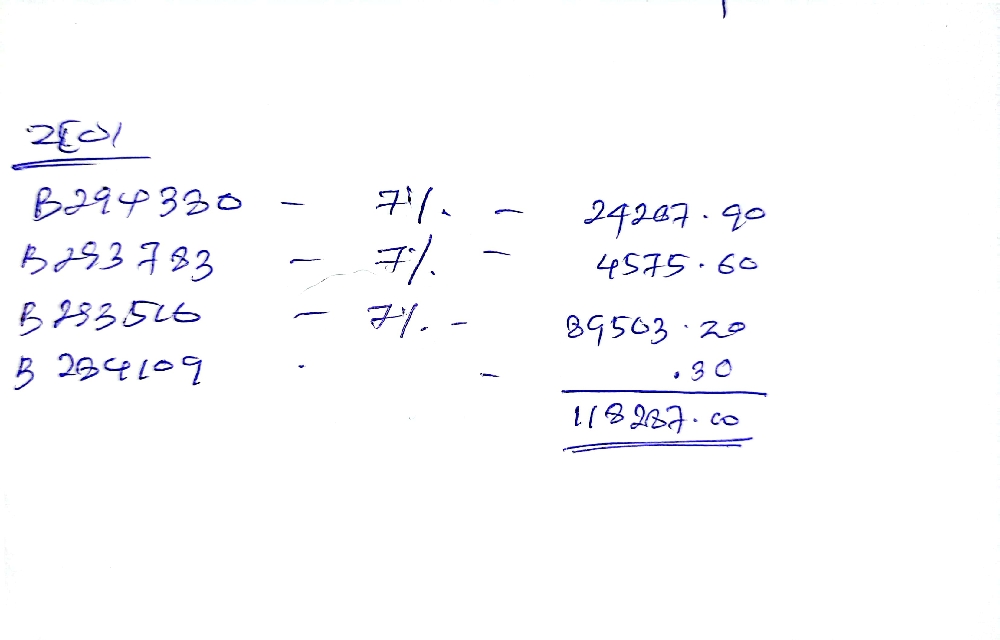 B294330 - 7% - 24207.90
B293783 - 7% - 4575.60
B293516 - 7% - 89503.20
B294109 - .30
118287.00